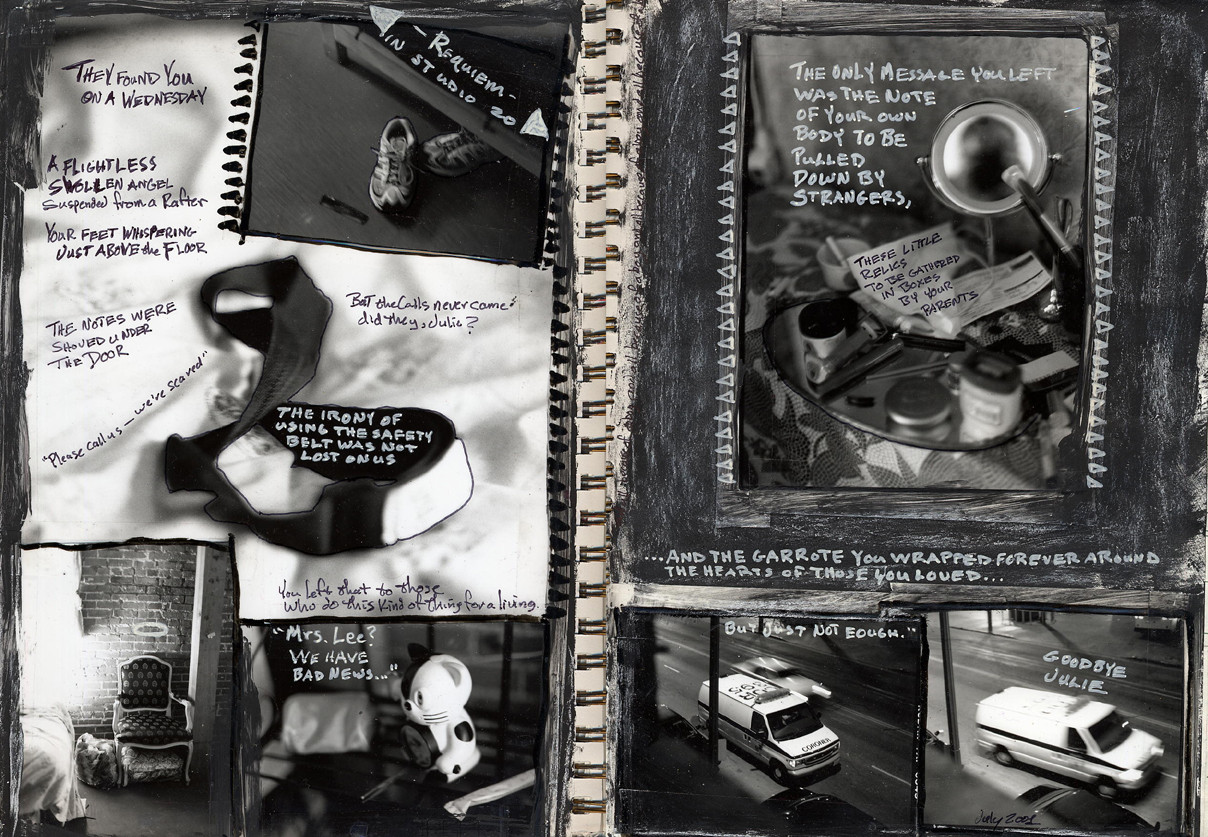 THEY FOUND YOU
ON A WEDNESDAY
- REQUIEM -
IN STUDIO 20
A FLIGHTLESS
SWOLLEN ANGEL
Suspended from a Rafter
YOUR FEET WHISPERING
JUST ABOVE the FLOOR
THE NOTES WERE
SHOVED UNDER
THE DOOR
"Please call us — we're scared"
But the Calls never came
did they, Julie?
THE IRONY OF
USING THE SAFETY
BELT WAS NOT
LOST ON US
You left that to those
who do this kind of thing for a living.
"MRS. LEE?
WE HAVE
BAD NEWS..."
THE ONLY MESSAGE YOU LEFT
WAS THE NOTE
OF YOUR OWN
BODY TO BE
PULLED
DOWN BY
STRANGERS,
THESE LITTLE
RELICS
TO BE GATHERED
IN BOXES
BY YOUR
PARENTS
...AND THE GARROTE YOU WRAPPED FOREVER AROUND
THE HEARTS OF THOSE YOU LOVED...
BUT JUST NOT EOUGH."
CORONER
GOODBYE
JULIE
July 2001